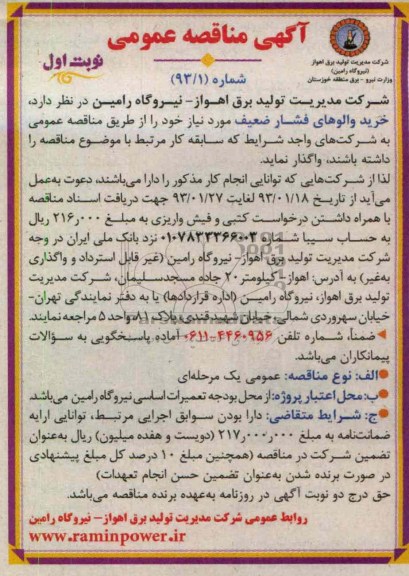 آگهی مناقصه عمومی
نوبت اول
شماره (۹۳/۱)
شرکت مدیریت تولید برق اهواز
(نیروگاه رامین)
وزارت نیرو - برق منطقه خوزستان
شرکت مدیریت تولید برق اهواز- نیروگاه رامین در نظر دارد،
خرید والوهای فشار ضعیف مورد نیاز خود را از طریق مناقصه عمومی
به شرکت‌های واجد شرایط که سابقه کار مرتبط با موضوع مناقصه را
داشته باشند، واگذار نماید.
لذا از شرکت‌هایی که توانایی انجام کار مذکور را دارا می‌باشند، دعوت به‌عمل
می‌آید از تاریخ ۹۳/۰۱/۱۸ لغایت ۹۳/۰۱/۲۷ جهت دریافت اسناد مناقصه
با همراه داشتن درخواست کتبی و فیش واریزی به مبلغ ۲۱۶ر۰۰۰ ریال
به حساب سیبا شماره ۰۱۰۷۸۳۳۳۶۶۰۰۳ نزد بانک ملی ایران در وجه
شرکت مدیریت تولید برق اهواز- نیروگاه رامین (غیر قابل استرداد و واگذاری
به‌غیر) به آدرس: اهواز- کیلومتر ۲۰ جاده مسجدسلیمان، شرکت مدیریت
تولید برق اهواز، نیروگاه رامین (اداره قراردادها) یا به دفتر نمایندگی تهران-
خیابان سهروردی شمالی، خیابان شهیدقندی، پلاک ۸۱، واحد ۵ مراجعه نمایند.
ضمناً، شماره تلفن ۴۴۶۰۹۵۶-۰۶۱۱ آماده پاسخگویی به سؤالات
پیمانکاران می‌باشد.
الف: نوع مناقصه: عمومی یک مرحله‌ای
ب: محل اعتبار پروژه: از محل بودجه تعمیرات اساسی نیروگاه رامین می‌باشد.
ج: شرایط متقاضی: دارا بودن سوابق اجرایی مرتبط، توانایی ارایه
ضمانت‌نامه به مبلغ ۲۱۷ر۰۰۰ر۰۰۰ (دویست و هفده میلیون) ریال به‌عنوان
تضمین شرکت در مناقصه (همچنین مبلغ ۱۰ درصد کل مبلغ پیشنهادی
در صورت برنده شدن به‌عنوان تضمین حسن انجام تعهدات)
حق درج دو نوبت آگهی در روزنامه به‌عهده برنده مناقصه می‌باشد.
روابط عمومی شرکت مدیریت تولید برق اهواز- نیروگاه رامین
www.raminpower.ir